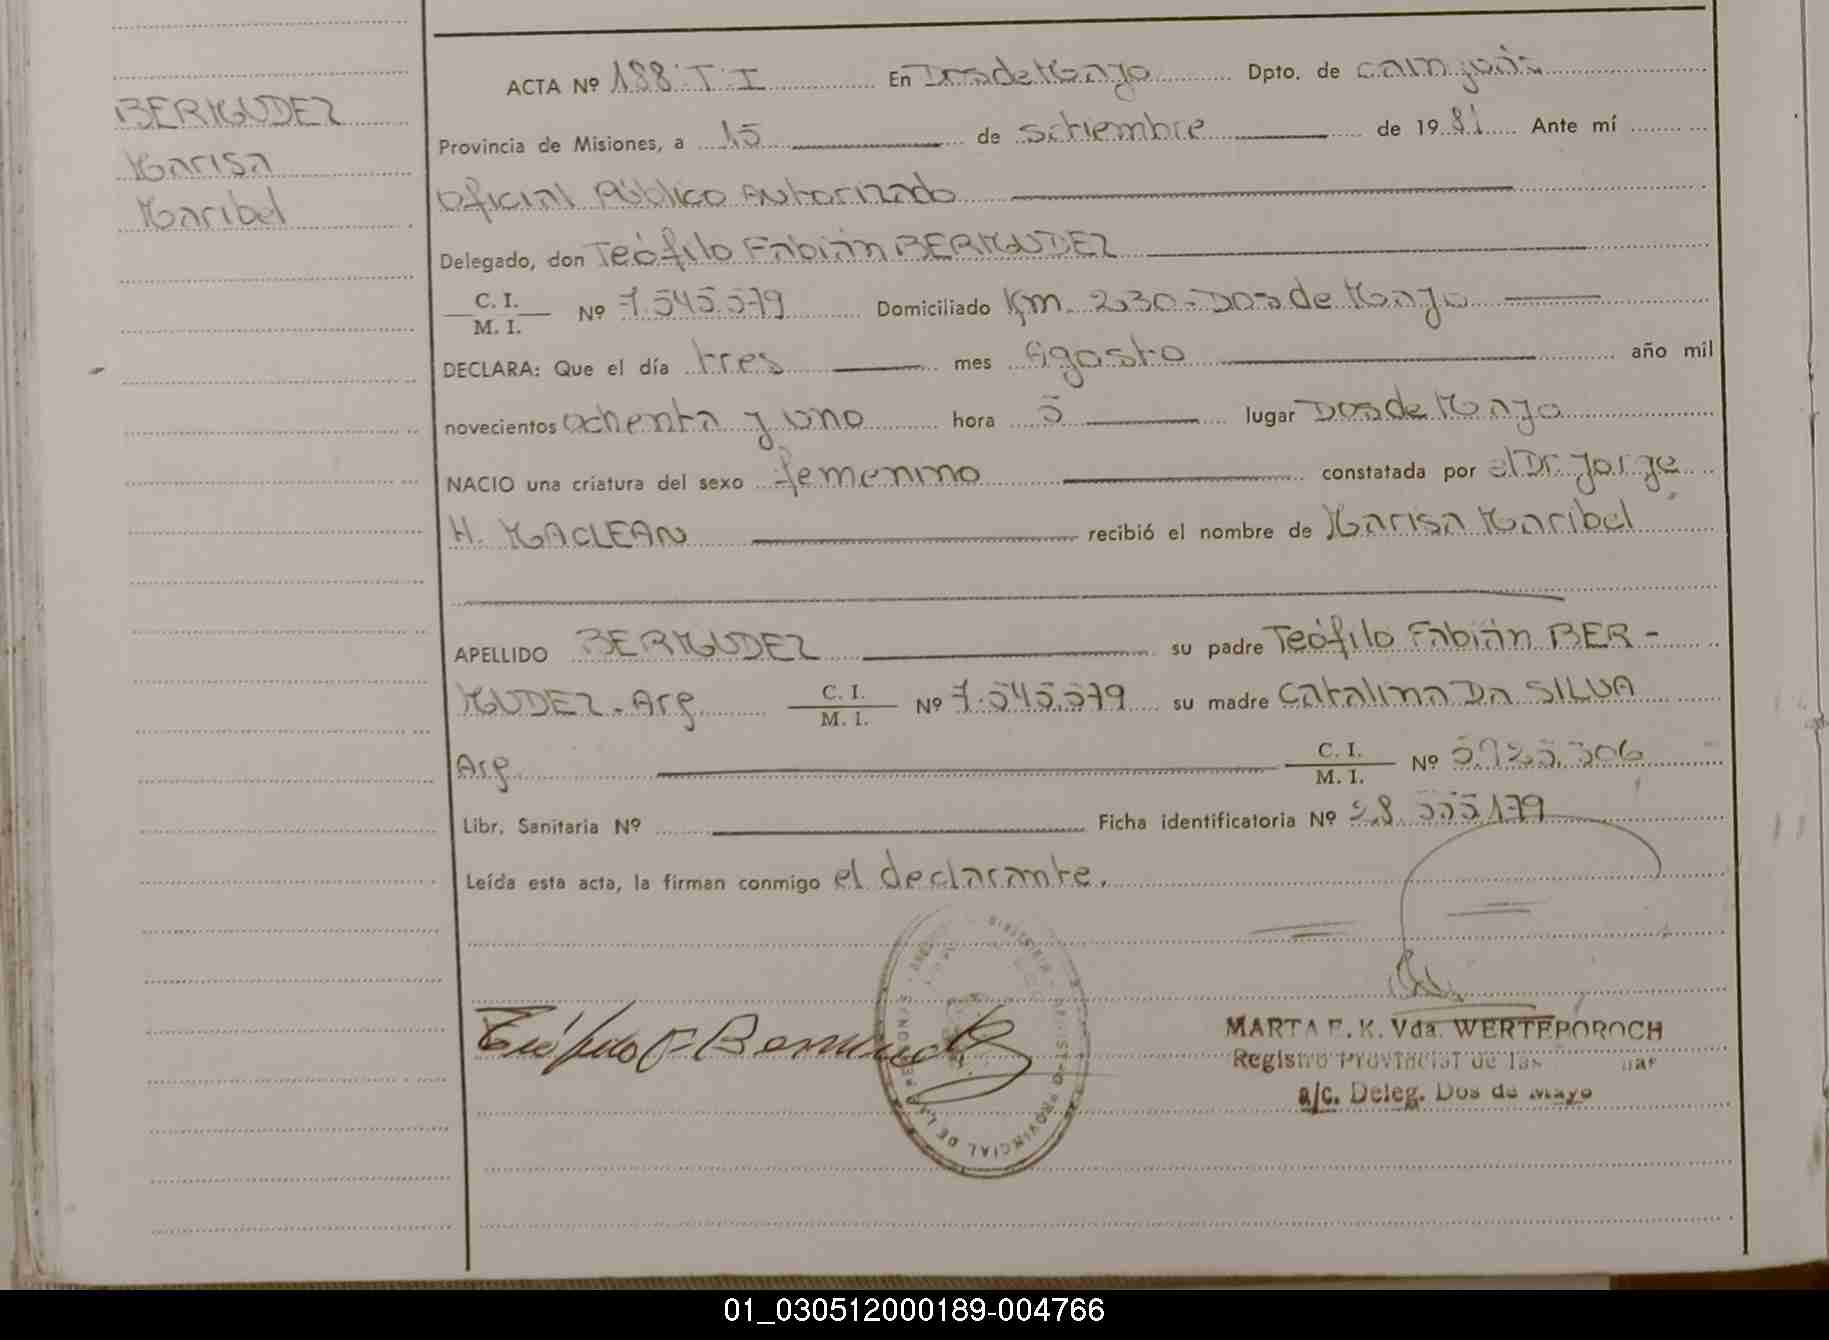 BERMUDEZ
Marisa
Maribel
ACTA Nº 188. T. I En Dos de Mayo Dpto. de Cainguás
Provincia de Misiones, a 15 de setiembre de 1981 Ante mí
Oficial Público Autorizado
Delegado, don Teófilo Fabián BERMUDEZ
C. I.
M. I. Nº 7.545.579 Domiciliado Km. 230-Dos de Mayo
DECLARA: Que el día tres mes Agosto año mil
novecientos ochenta y uno hora 5 lugar Dos de Mayo
NACIO una criatura del sexo femenino constatada por el Dr. Jorge
H. MACLEAN recibió el nombre de Marisa Maribel
APELLIDO BERMUDEZ su padre Teófilo Fabián BER-
MUDEZ. Arg C. I. M. I. Nº 7.545.579 su madre Catalina DA SILVA
Arg. C. I. M. I. Nº
Libr. Sanitaria Nº Ficha identificatoria Nº 28.555179
Leída esta acta, la firman conmigo el declarante.
Teófilo F Bermudez
MARTA E. K. Vda. WERTEPOROCH
Registro Provincial de las
a/c. Deleg. Dos de Mayo
REGISTRO PROVINCIAL DE LAS PERSONAS
01_030512000189-004766